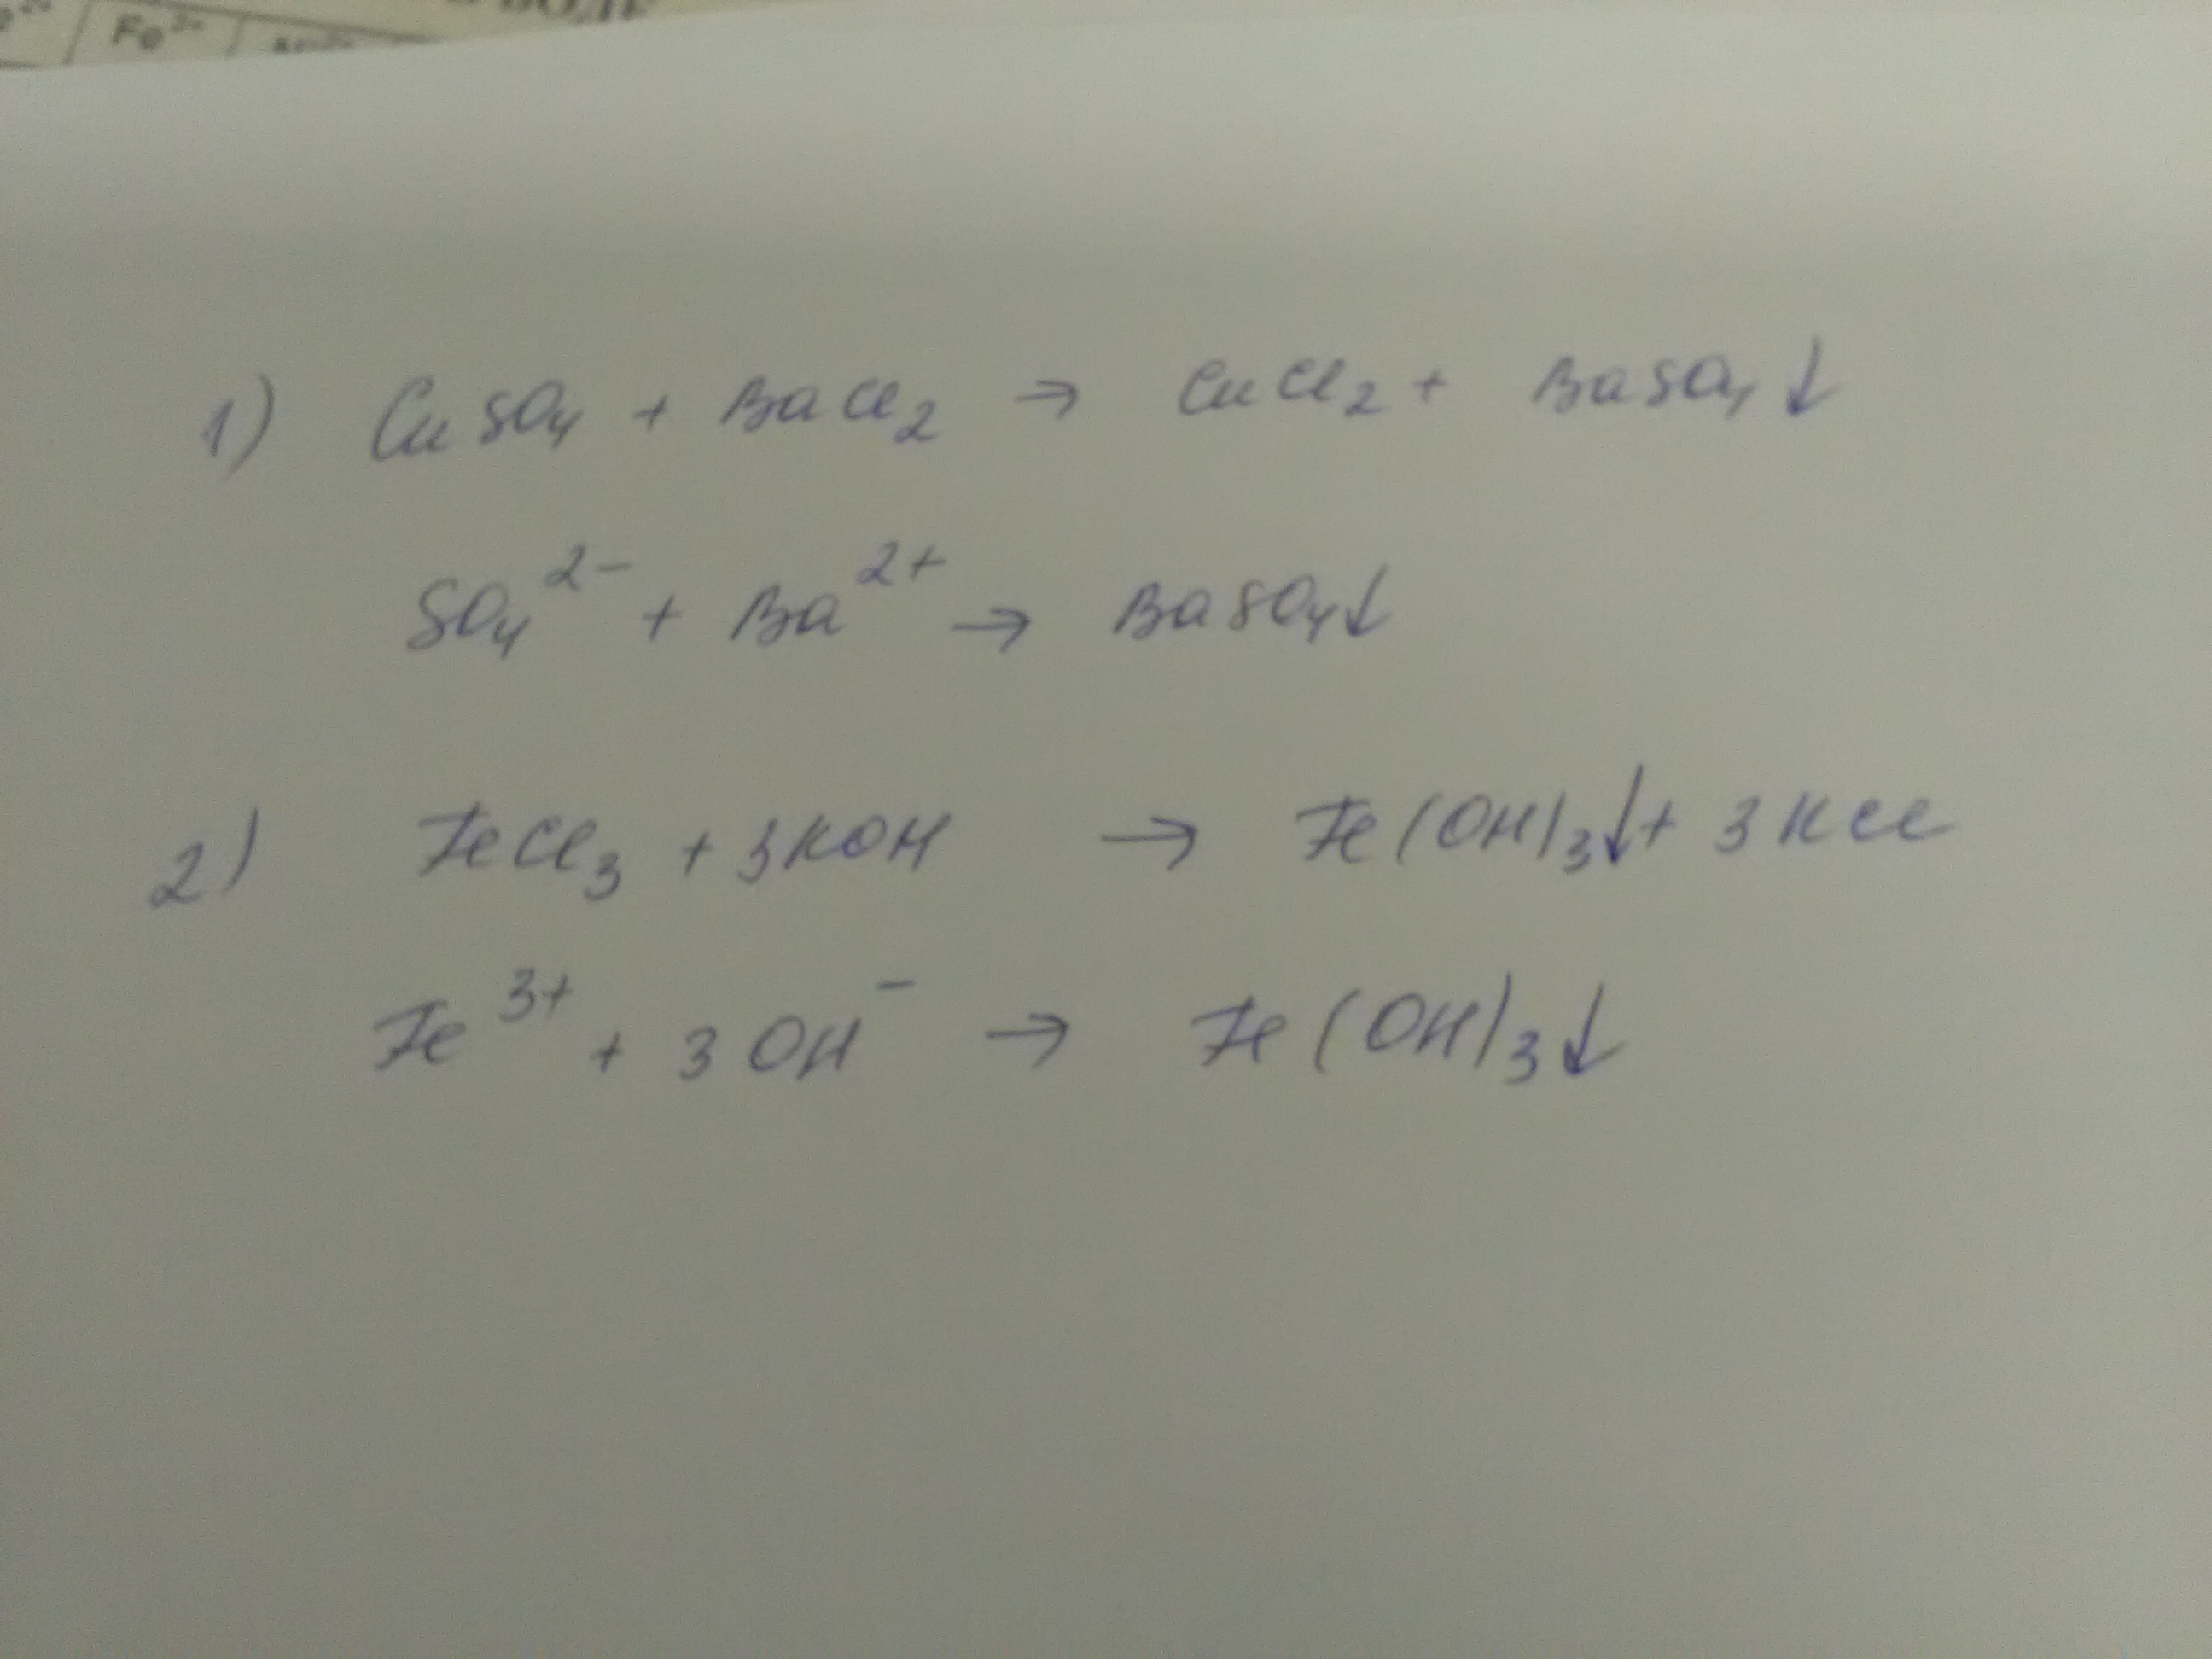 Fe³⁺
1) CuSO₄ + BaCl₂ → CuCl₂ + BaSO₄↓
SO₄²⁻ + Ba²⁺ → BaSO₄↓
2) FeCl₃ + 3KOH → Fe(OH)₃↓ + 3KCl
Fe³⁺ + 3OH⁻ → Fe(OH)₃↓